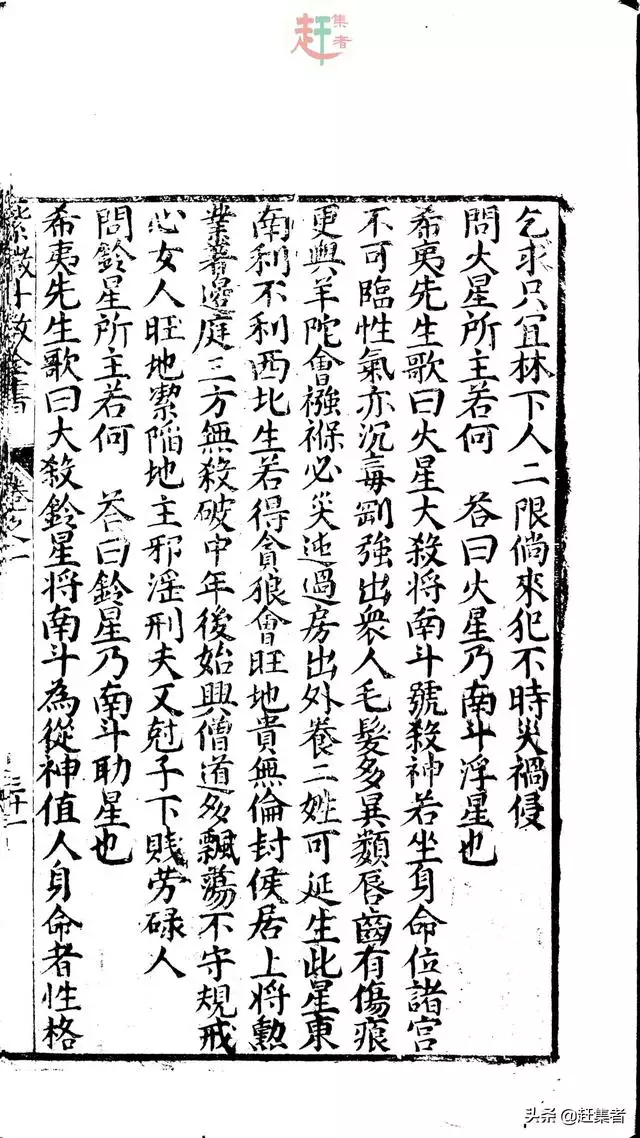 赶集者
乞求只宜林下人二限倘來犯不時災禍侵
問火星所主若何　答曰火星乃南斗浮星也
希夷先生歌曰火星大殺将南斗號殺神若坐身命位諸宫
不可臨性氣亦沉毒剛強出衆人毛髮多異類唇齒有傷痕
更與羊陀會襁褓必災迍過房出外養二姓可延生此星東
南利不利西北生若得貪狼會旺地貴無倫封侯居上将勲
業著邊庭三方無殺破中年後始興僧道多飄蕩不守規戒
心女人旺地潔陷地主邪淫刑夫又尅子下賤劳碌人
問鈴星所主若何　答曰鈴星乃南斗助星也
希夷先生歌曰大殺鈴星将南斗為從神值人身命者性格
紫微斗数全書　卷之一　三十一
头条 @赶集者